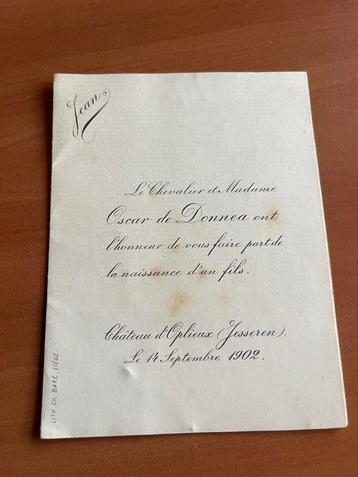 Jean
Le Chevalier et Madame
Oscar de Donnea ont
l'honneur de vous faire part de
la naissance d'un fils.
Château d'Oplieux (Jesseren).
Le 14 Septembre 1902.
LITH. CH. BARÉ, LIÉGE.